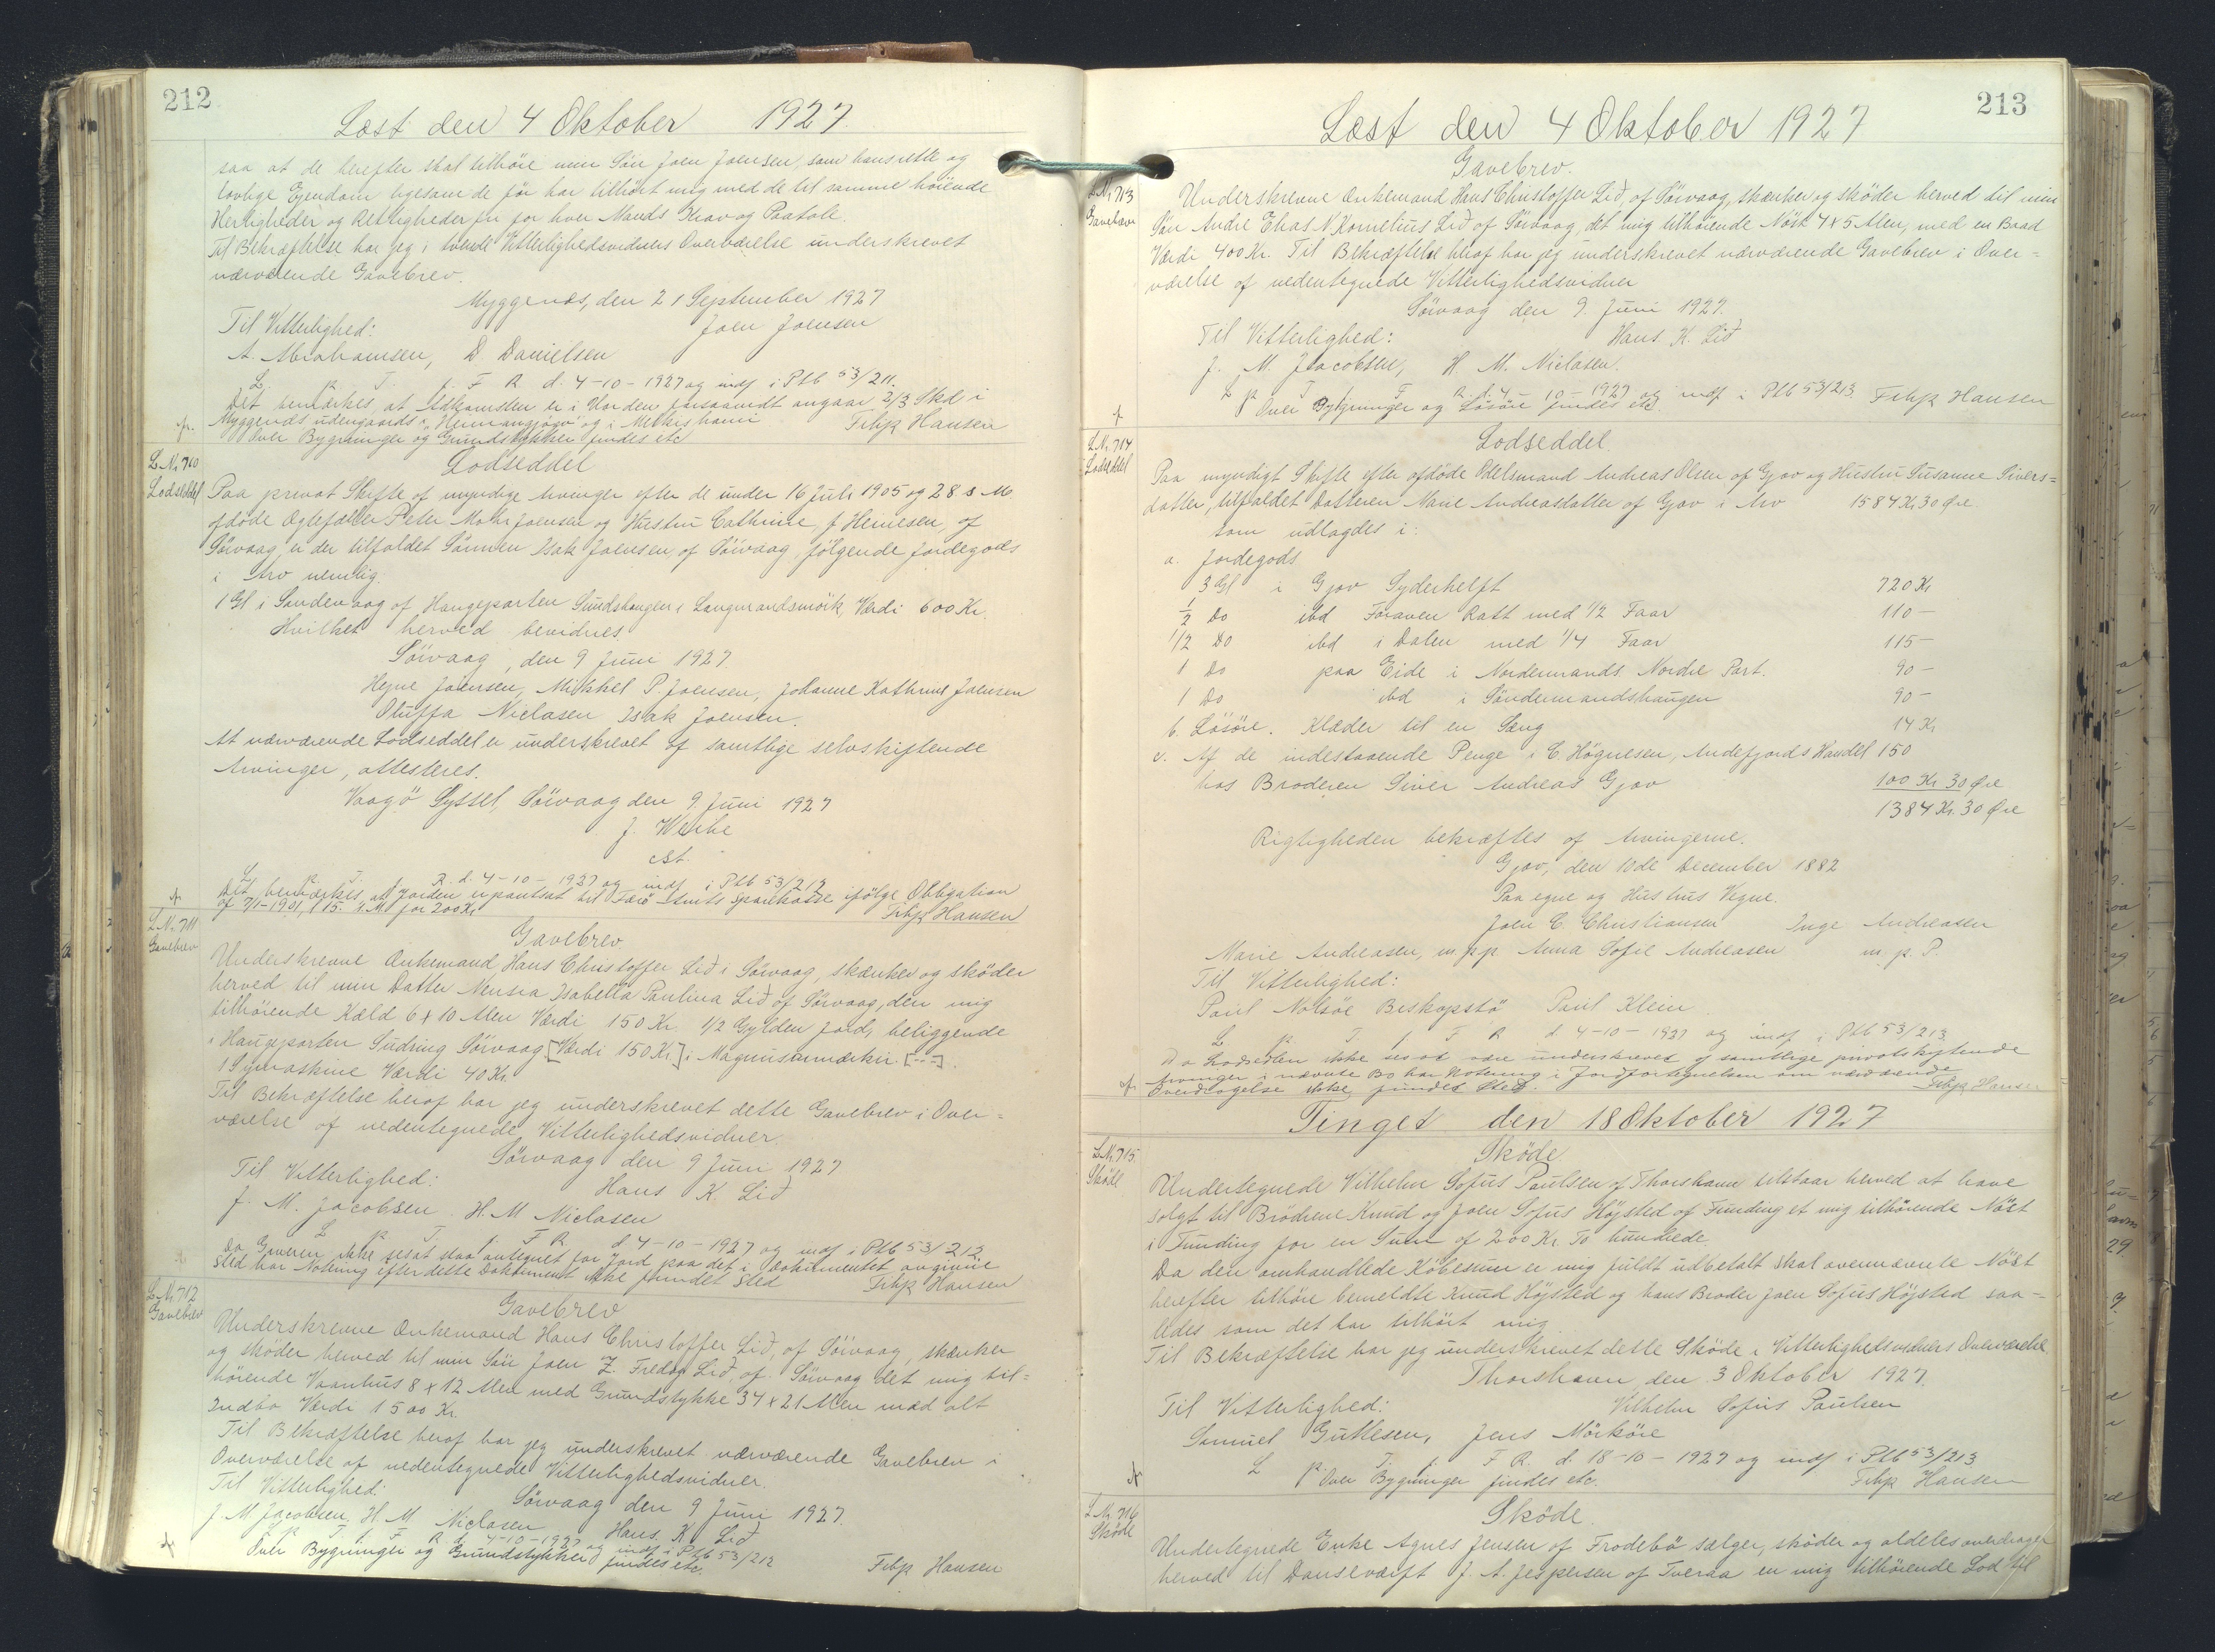 212
Læst den 4 Oktober 1927.
saa at de herefter skal tilhöre min Sön Joen Joensen, som hans rette og
lovlige Ejendom ligesom de för har tilhört mig med de til samme hörende
Herligheder og Rettigheder fri for hver Mands Krav og Paatale.
Til Bekræftelse har jeg i tvende Vitterlighedsvidners Overværelse underskrevet
nærværende Gavebrev.
Myggenæs, den 21 September 1927
Til Vitterlighed: Joen Joensen
A. Abrahamsen, D. Danielsen
L. p. T. f. F. R. d. 4-10-1927 og indf i Ptb 53/211.
Det bemærkes, at Adkomsten er i Orden forsaavidt angaar 2/3 Skd i
Myggenæs udengaards og i
Over Bygninger og Grundstykker findes etc Filip Hansen
L. Nr. 710
Lodseddel
Lodseddel
Paa privat Skifte af myndige Arvinger efter de under 16 Juli 1905 og 28 s. M.
afdöde Ægtefæller Peter Mohr Joensen og Hustru Cathrine, f. Heinesen, af
Sörvaag, er der tilfaldet Sönnen Isak Joensen, af Sörvaag, fölgende Jordegods
i Arv nemlig.
1 Gl i Sandevaag af Haugeparten Sundshaugen i Langmandsmörk, Værdi 600 Kr.
Hvilket herved bevidnes.
Sörvaag, den 9 Juni 1927.
Hejne Joensen, Mikkel P. Joensen, Johanne Kathrine Joensen
Oluffa Niclasen Isak Joensen.
At nærværende Lodseddel er underskrevet af samtlige selvskiftende
Arvinger, attesteres.
Vaagö Syssel, Sörvaag den 9. Juni 1927
J. Weihe
cst.
L. p. T. f. R. d. 4-10-1927 og indf i Ptb 53/212
Det bemærkes, at Jorden er pantsat til Færö Amts Sparekasse ifölge Obligation
af 7/1-1901, 115. A.M for 200 Kr. Filip Hansen
L. Nr. 711
Gavebrev
Gavebrev.
Underskrevne Enkemand, Hans Christoffer Lið i Sörvaag, skænker og sköder
herved til min Datter Neusia Isabella Paulina Lið af Sörvaag, den mig
tilhörende Kæld 6 x 10 Alen Værdi 150 Kr. 1/2 Gylden Jord, beliggende
i Haugeparten Sudring Sörvaag [Værdi 150 Kr] i Magnusarmærkir. [---].
1 Symaskine Værdi 40 Kr.
Til Bekræftelse heraf har jeg underskrevet dette Gavebrev i Over=
værelse af nedentegnede Vitterlighedsvidner.
Sörvaag den 9 Juni 1927
Til Vitterlighed: Hans K. Lið
J. M. Jacobsen. H. M Niclasen
L p. T. f. F. R. d 4-10-1927 og indf i Ptb 53/212.
Da Giveren ikke sesat staa antegnet for Jord paa det i Dokumentet angivne
Sted har Notering efter dette Dokument ikke fundet Sted Filip Hansen
L. Nr. 712
Gavebrev
Gavebrev
Underskrevne Enkemand Hans Christoffer Lið, af Sörvaag, skænker
og sköder herved til min Sön Joen Z. Fredag Lið, af Sörvaag det mig til=
hörende Vaanhus 8 x 12 Alen med Grundstykke 34 x 21 Alen med alt
Indbo Værdi 1500 Kr.
Til Bekræftelse heraf har jeg underskrevet nærværende Gavebrev i
Overværelse af nedentegnede Vitterlighedsvidner.
Sörvaag den 9 Juni 1927.
Til Vitterlighed: Hans. K. Lið
J. M Jacobsen, H. M Niclasen
L p T. f. F. R. d. 4-10-1927 og indf i Ptb 53/212
Over Bygninger og Grundstykker findes etc. Filip Hansen
213
Læst den 4 Oktober 1927
Gavebrev.
L. Nr. 713
Gavebrev
Underskrevne Enkemand Hans Christoffer Lið, af Sörvaag, skænker og sköder herved til min
Sön Andre Elias N Kornelius Lið af Sörvaag, det mig tilhörende Nöst 4 x 5 Alen, med en Baad
Værdi 400 Kr. Til Bekræftelse heraf har jeg underskrevet nærværende Gavebrev i Over=
værelse af nedentegnede Vitterlighedsvidner
Sörvaag den 9. Juni 1927.
Til Vitterlighed: Hans K. Lið
J. M. Jacobsen, H. M. Niclasen.
L p T f F R d. 4-10-1927 og indf i Ptb 53/213
Over Bygninger og Lösöre findes etc. Filip Hansen
L. Nr. 714
Lodseddel
Lodseddel.
Paa myndigt Skifte efter afdöde Odelsmand Andreas Olsen af Gjov og Hustru Susanne Sivers=
datter, tilfaldet Datteren Marie Andreasdatter af Gjov i Arv 1584 Kr 30 Øre.
som udlagdes i:
a. Jordegods
3 Gl i Gjov Syderhelft 720 Kr
1/2 Do ibd Foraven Ratt med 1/2 Faar 110 -
1/2 Do ibd i Dalen med 1/4 Faar 115 -
1 Do paa Eide i Nordenrands Nordre Part. 90 -
1 Do ibd i Söndermandshaugen 90 -
b. Lösöre. Klæder til en Seng 14 Kr
c. Af de indestaaende Penge i C. Högnesen, Andefjords Handel 150
hos Broderen Siver Andreas Gjov 100 Kr 30 Øre
1384 Kr. 30 Øre
Rigtigheden bekræftes af Arvingerne.
Gjov, den 10de December 1882
Paa egne og Hustrus Vegne.
Joen C. Christiansen Inge Andreasen
Marie Andreasen, m.p.p Anna Sofie Andreasen m. p. P.
Til Vitterlighed:
Poul Nolsöe Biskopstö Poul Klein
L p. T f F R d. 4-10-1927 og indf i Ptb 53/213
Da Lodsedlen ikke sesat være underskrevet af samtlige privatskiftende
Arvinger i nævnte Bo har Notering i Jordfortegnelsen om nærværende
Overdragelse ikke fundet Sted. Filip Hansen
Tinget den 18 Oktober 1927
L. Nr. 715.
Sköde
Sköde.
Undertegnede Vilhelm Sofus Paulsen af Thorshavn tilstaar herved at have
solgt til Brödrene Knud og Joen Sofus Höjsted af Funding et mig tilhörende Nöst
i Funding for en Sum af 200 Kr. To hundrede
Da den omhandlede Köbesum er mig fuldt udbetalt skal ovennævnte Nöst
herefter tilhöre bemeldte Knud Höjsted og hans Broder Joen Sofus Höjsted saa=
ledes som det har tilhört mig.
Til Bekræftelse har jeg underskrevet dette Sköde i Vitterlighedsvidners Overværelse
Thorshavn, den 3 Oktober 1927.
Til Vitterlighed: Vilhelm Sofus Paulsen
Samuel Guttesen, Jens Mörköre
L p. T. f. F. R. d. 18-10-1927 og indf i Ptb 53/213
Over Bygninger findes etc. Filip Hansen
L. Nr. 716
Sköde
Sköde.
Undertegnede Enke Agnes Jensen af Frodebö sælger, sköder og aldeles overdrager
herved til J. A. Jespersen af Tveraa en mig tilhörende Lod til